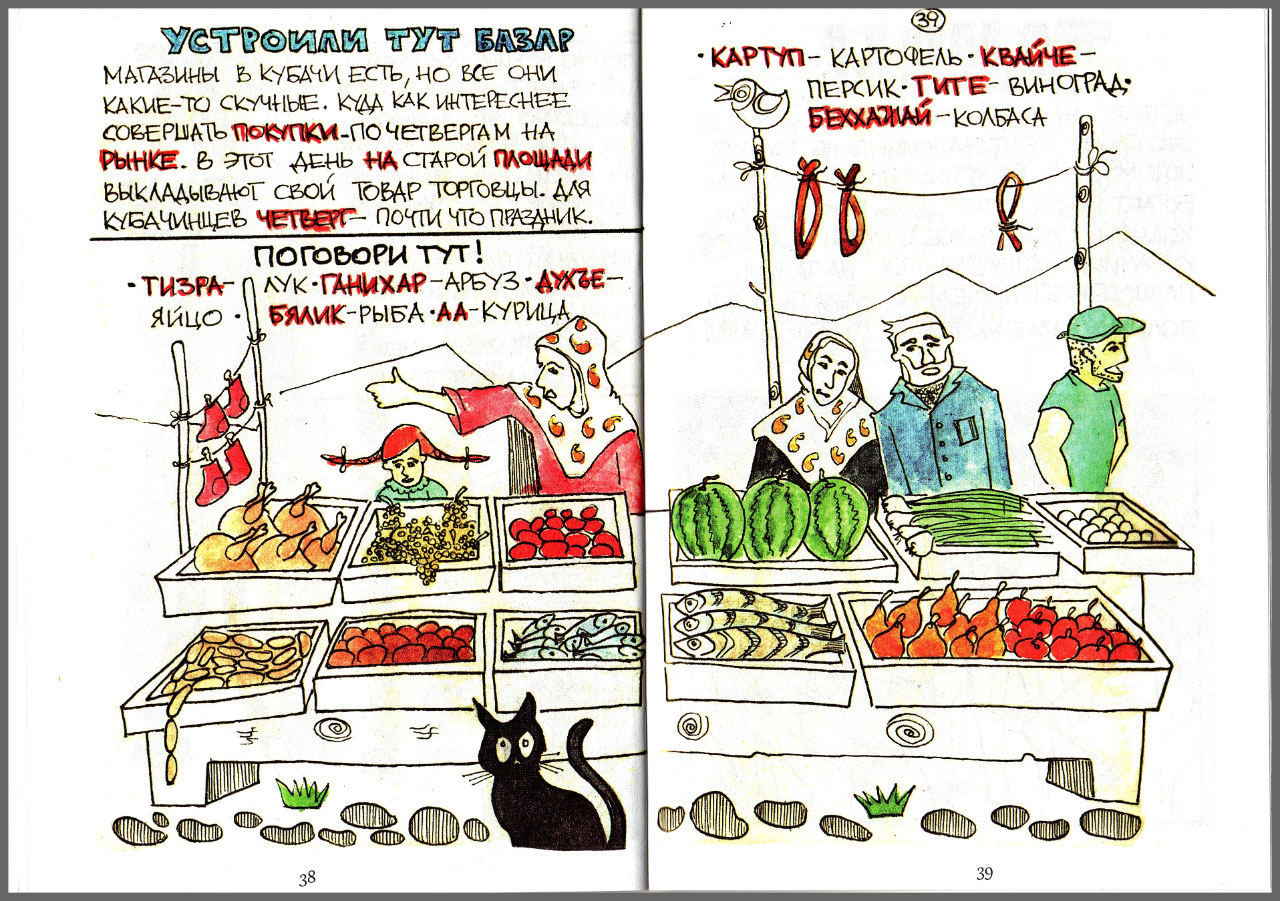 УСТРОИЛИ ТУТ БАЗАР
МАГАЗИНЫ В КУБАЧИ ЕСТЬ, НО ВСЕ ОНИ
КАКИЕ-ТО СКУЧНЫЕ. КУДА КАК ИНТЕРЕСНЕЕ
СОВЕРШАТЬ ПОКУПКИ-ПО ЧЕТВЕРГАМ НА
РЫНКЕ. В ЭТОТ ДЕНЬ НА СТАРОЙ ПЛОЩАДИ
ВЫКЛАДЫВАЮТ СВОЙ ТОВАР ТОРГОВЦЫ. ДЛЯ
КУБАЧИНЦЕВ ЧЕТВЕРГ- ПОЧТИ ЧТО ПРАЗДНИК.
ПОГОВОРИ ТУТ!
·ТИЗРА- ЛУК·ГАНИХАР-АРБУЗ·ДУХЪЕ-
ЯЙЦО · БЯЛИК-РЫБА·АА-КУРИЦА
38
39
·КАРТУП- КАРТОФЕЛЬ·КВАЙЧЕ-
ПЕРСИК·ТИТЕ- ВИНОГРАД·
БЕХХАЛАЙ-КОЛБАСА
39